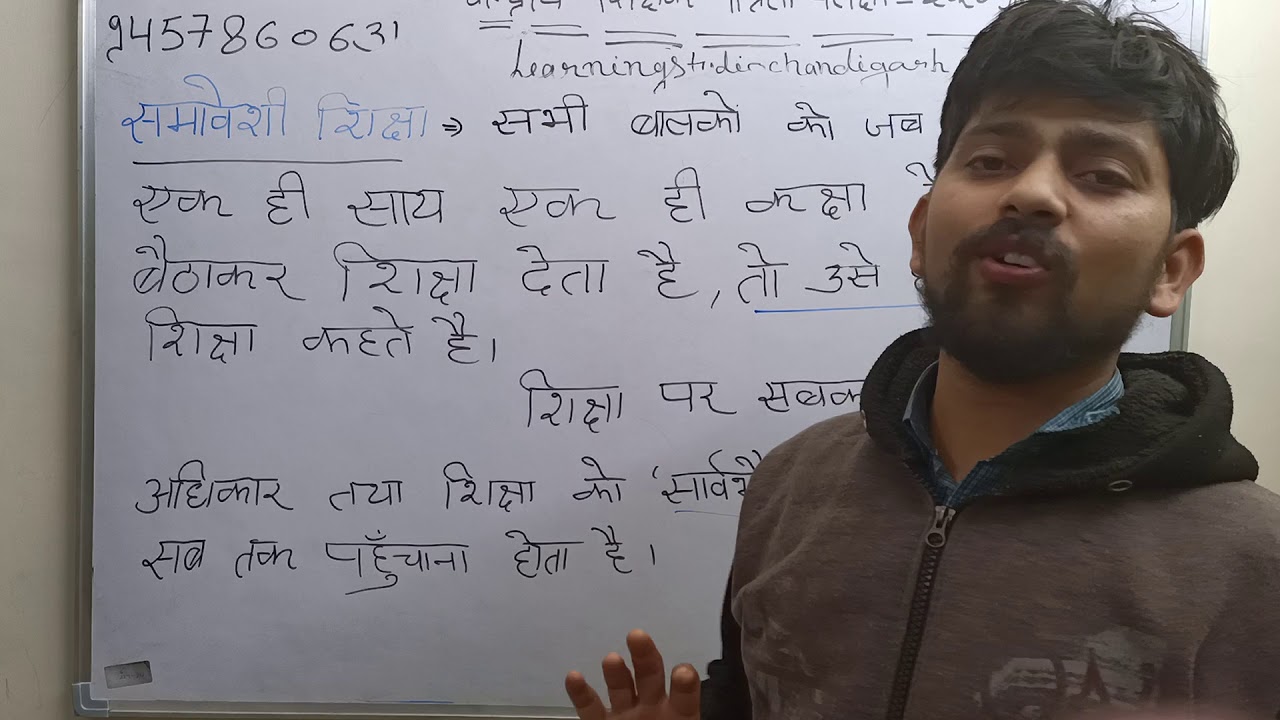 9457860631
शिक्षक
Learningstudeinchandigarh
समावेशी शिक्षा ⇒ सभी बालकों को जब
एक ही साथ एक ही कक्षा
बैठाकर शिक्षा देता है, तो उसे
शिक्षा कहते है।
शिक्षा पर
अधिकार तथा शिक्षा को
सब तक पहुँचाना होता है।